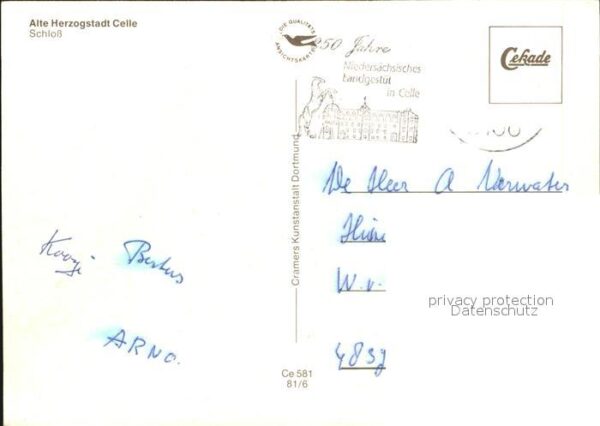 Alte Herzogstadt Celle
Schloß
DIE QUALITÄTS
ANSICHTSKARTE
250 Jahre
Niedersächsisches
Landgestüt
in Celle
Cekade
Cramers Kunstanstalt Dortmund
De Heer A Verwater
W.v.
Bertus
ARNO.
privacy protection
Datenschutz
Ce 581
81/6